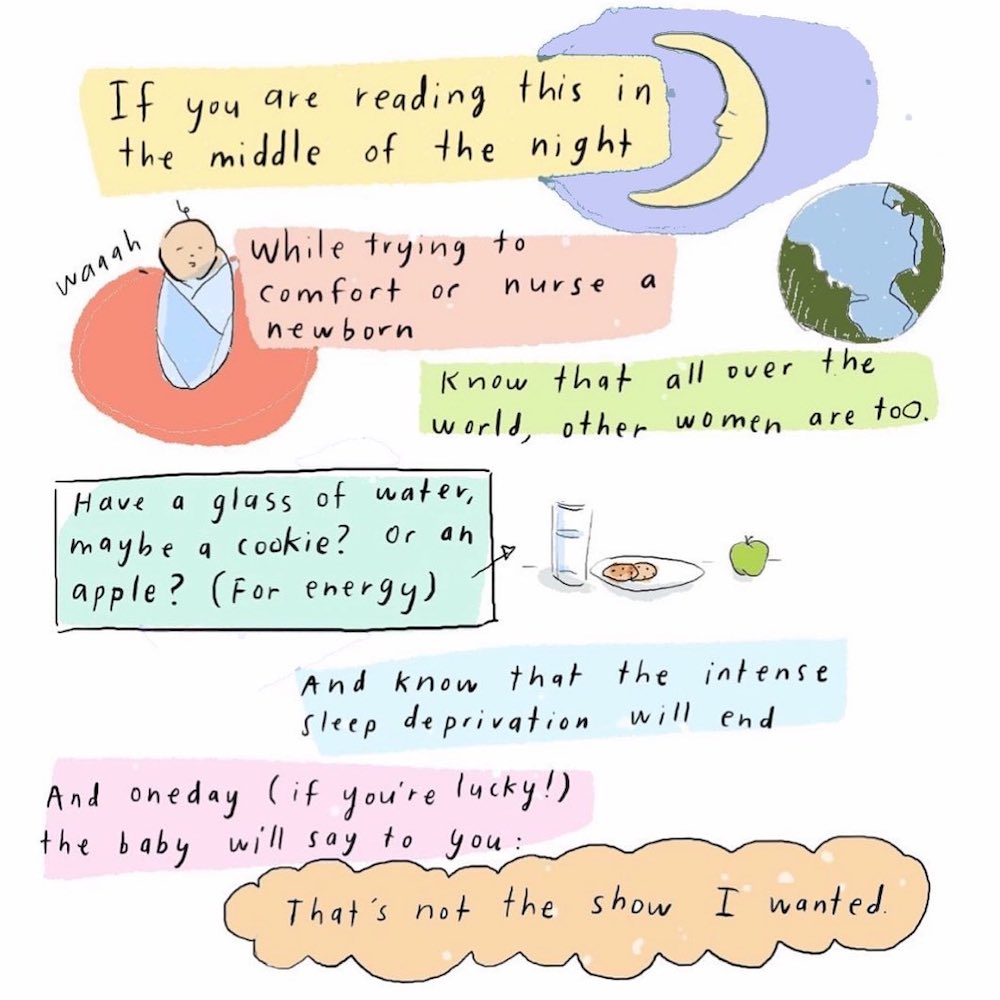 If you are reading this in
the middle of the night
waaah
While trying to
comfort or nurse a
newborn
Know that all over the
world, other women are too.
Have a glass of water,
maybe a cookie? Or an
apple? (For energy)
And know that the intense
sleep deprivation will end
And oneday (if you're lucky!)
the baby will say to you:
That's not the show I wanted.